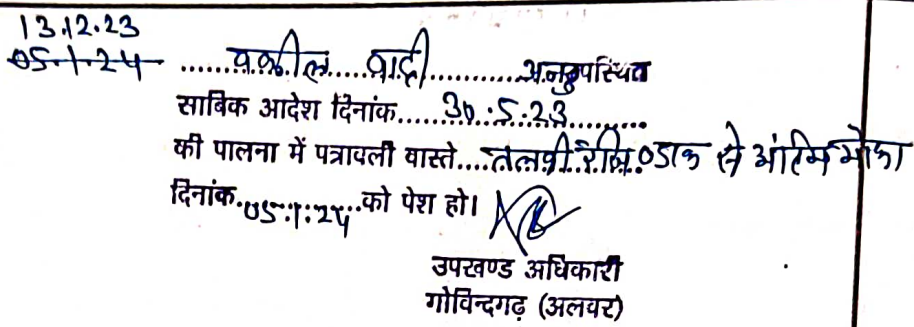 13.12.23
05.1.24 ......वकील.....वादी............अनुपस्थित
साबिक आदेश दिनांक......30.5.23..........
की पालना में पत्रावली वास्ते....तलबी.रजि.0डाक से अंतिम मौका
दिनांक.05.1.24.को पेश हो।
उपखण्ड अधिकारी
गोविन्दगढ़ (अलवर)